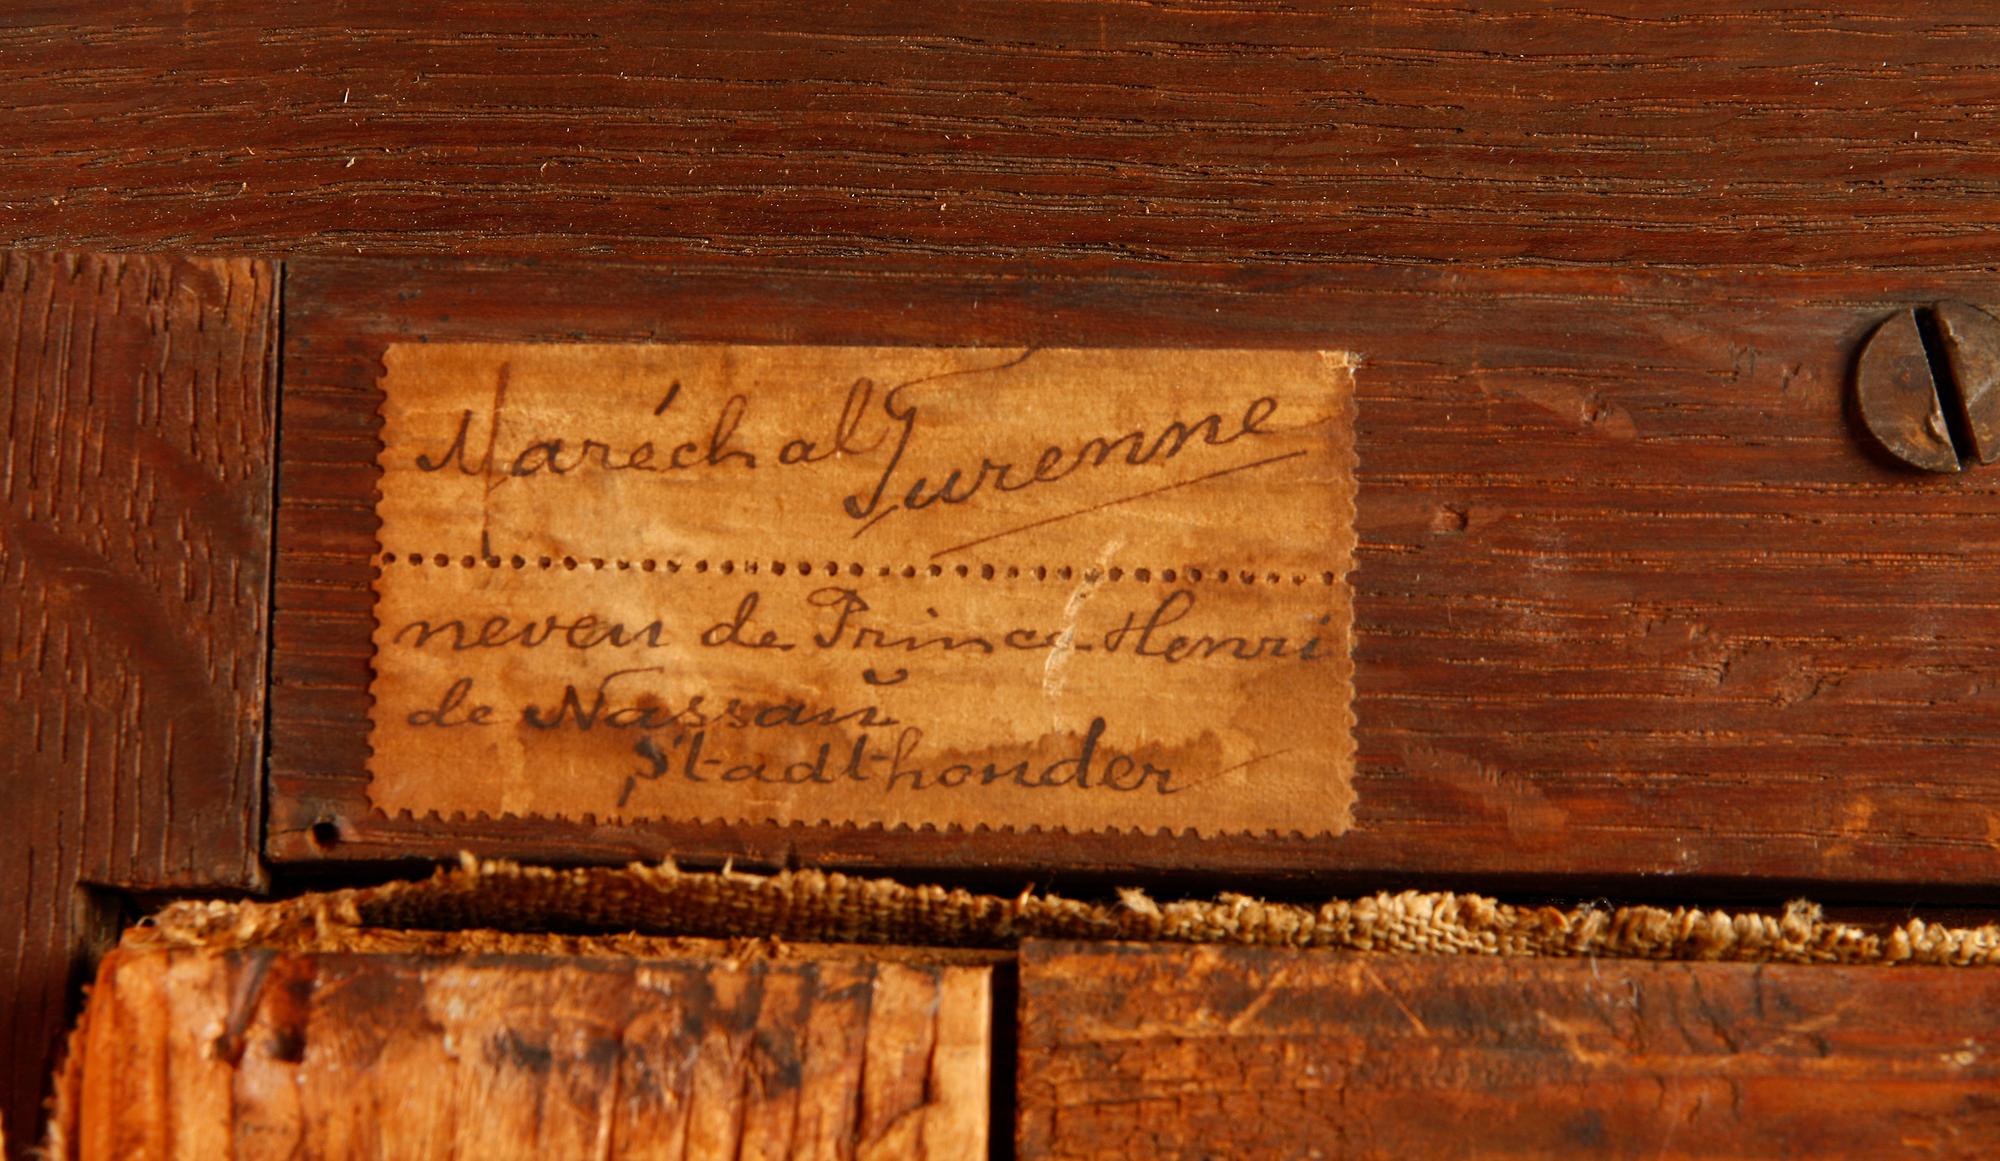 Maréchal Turenne
neveu de Prince Henri
de Nassaŭ
Stadthouder